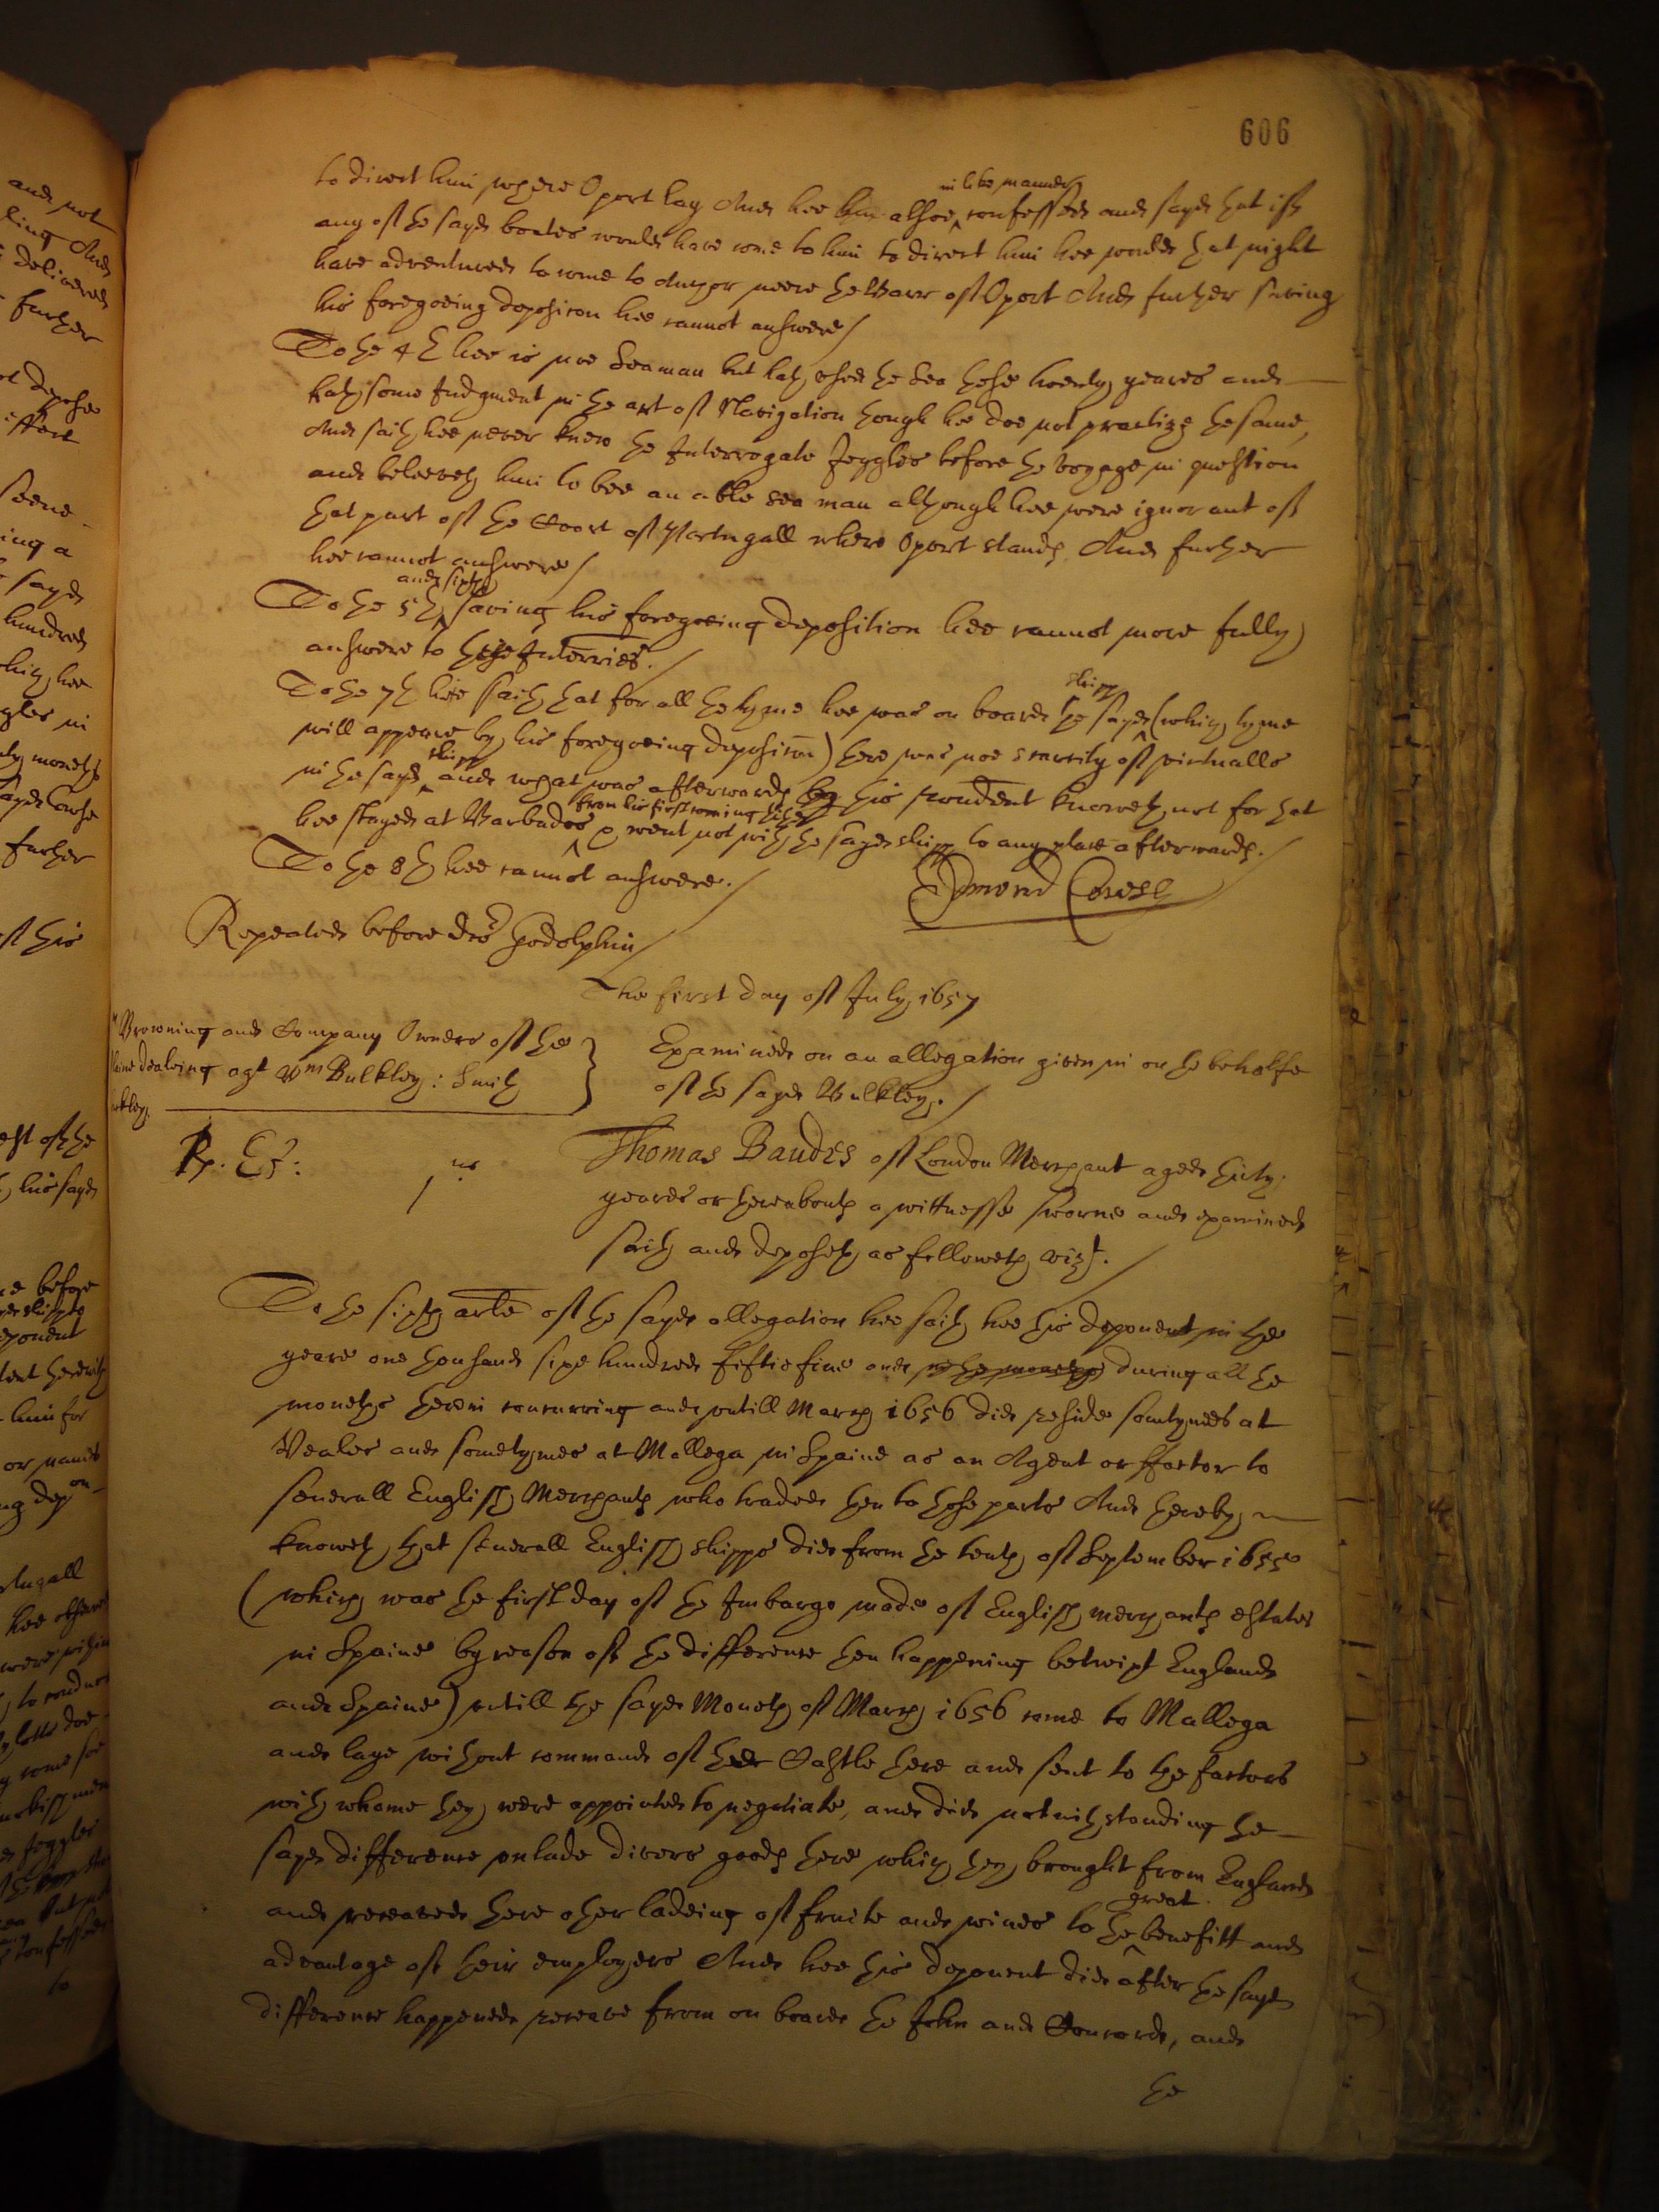 606
to direct him where Oport lay And hee him alsoe in like manner confessed and sayd that if
any of the sayd boates would have come to him to direct him hee would that night
have adventured to come to Anchor neere the Barr of Oport And further saving
his foregoeing deposicon hee cannot answere/
To the 4th hee is noe Seaman but hath used the Sea these twenty yeares and
hath some Judgment in the art of Navigation though hee doe not practize the same,
And saith hee never knew the Interrogate Jeggles before the voyage in question
and beleeveth him to bee an able sea man although hee were ignorant of
that part of the Coast of Portugall where Oport stands. And further
hee cannot answere/
To the 5th and sixth saving his foregoeing deposition hee cannot more fully
answere to these Interries./
To the 7th hee saith that for all the tyme hee was on board the sayd shipp (which tyme
will appeare by his foregoeing deposicon) there was noe scarsity of victualls
in the sayd shipp and what was afterwards by this rendent knoweth not for that
hee stayed at Barbados from his first coming thither & went not with the sayd shipp to any place afterwards./
To the 8th hee cannot answere./
Edmond Cowse
Repeated before dor Godolphin/
The first day of July 1657
Browning and Company Owners of the
plaine dealing agt Wm Bulkley: Smith
Examined on an allegation given in on the behalfe
of the sayd Bulkley./
Rp. EA:
1us
Thomas Bandes of London Merchant aged thirty
yeares or thereabouts a wittnesse sworne and examined
saith and deposeth as followeth vizt./
To the sixth arle of the sayd allegation hee saith hee this deponent in the
yeare one thousand sixe hundred fiftie five and in the moneths during all the
moneths therein concurring and untill March 1656 did reside somtymes at
Veales and sometymes at Mallega in Spaine as an Agent or ffactor to
severall English Merchants who traded then to those parts And thereby
knoweth that severall English shipps did from the tenth of September 1655
(which was the first day of the Imbargo made of English merchants estates
in Spaine by reason of the difference then happening betwixt England
and Spaine) untill the sayd Moneth of March 1656 come to Mallega
and laye without command of the Castle there and sent to the factors
with whome they were appointed to negotiate, and did notwithstanding the
sayd difference unlade divers goods there which they brought from England
and received there other ladeing of fruite and wines to the great benefitt and
advantage of their employers And hee this deponent did after the sayd
difference happened receave from on board the John and Concord, and
the